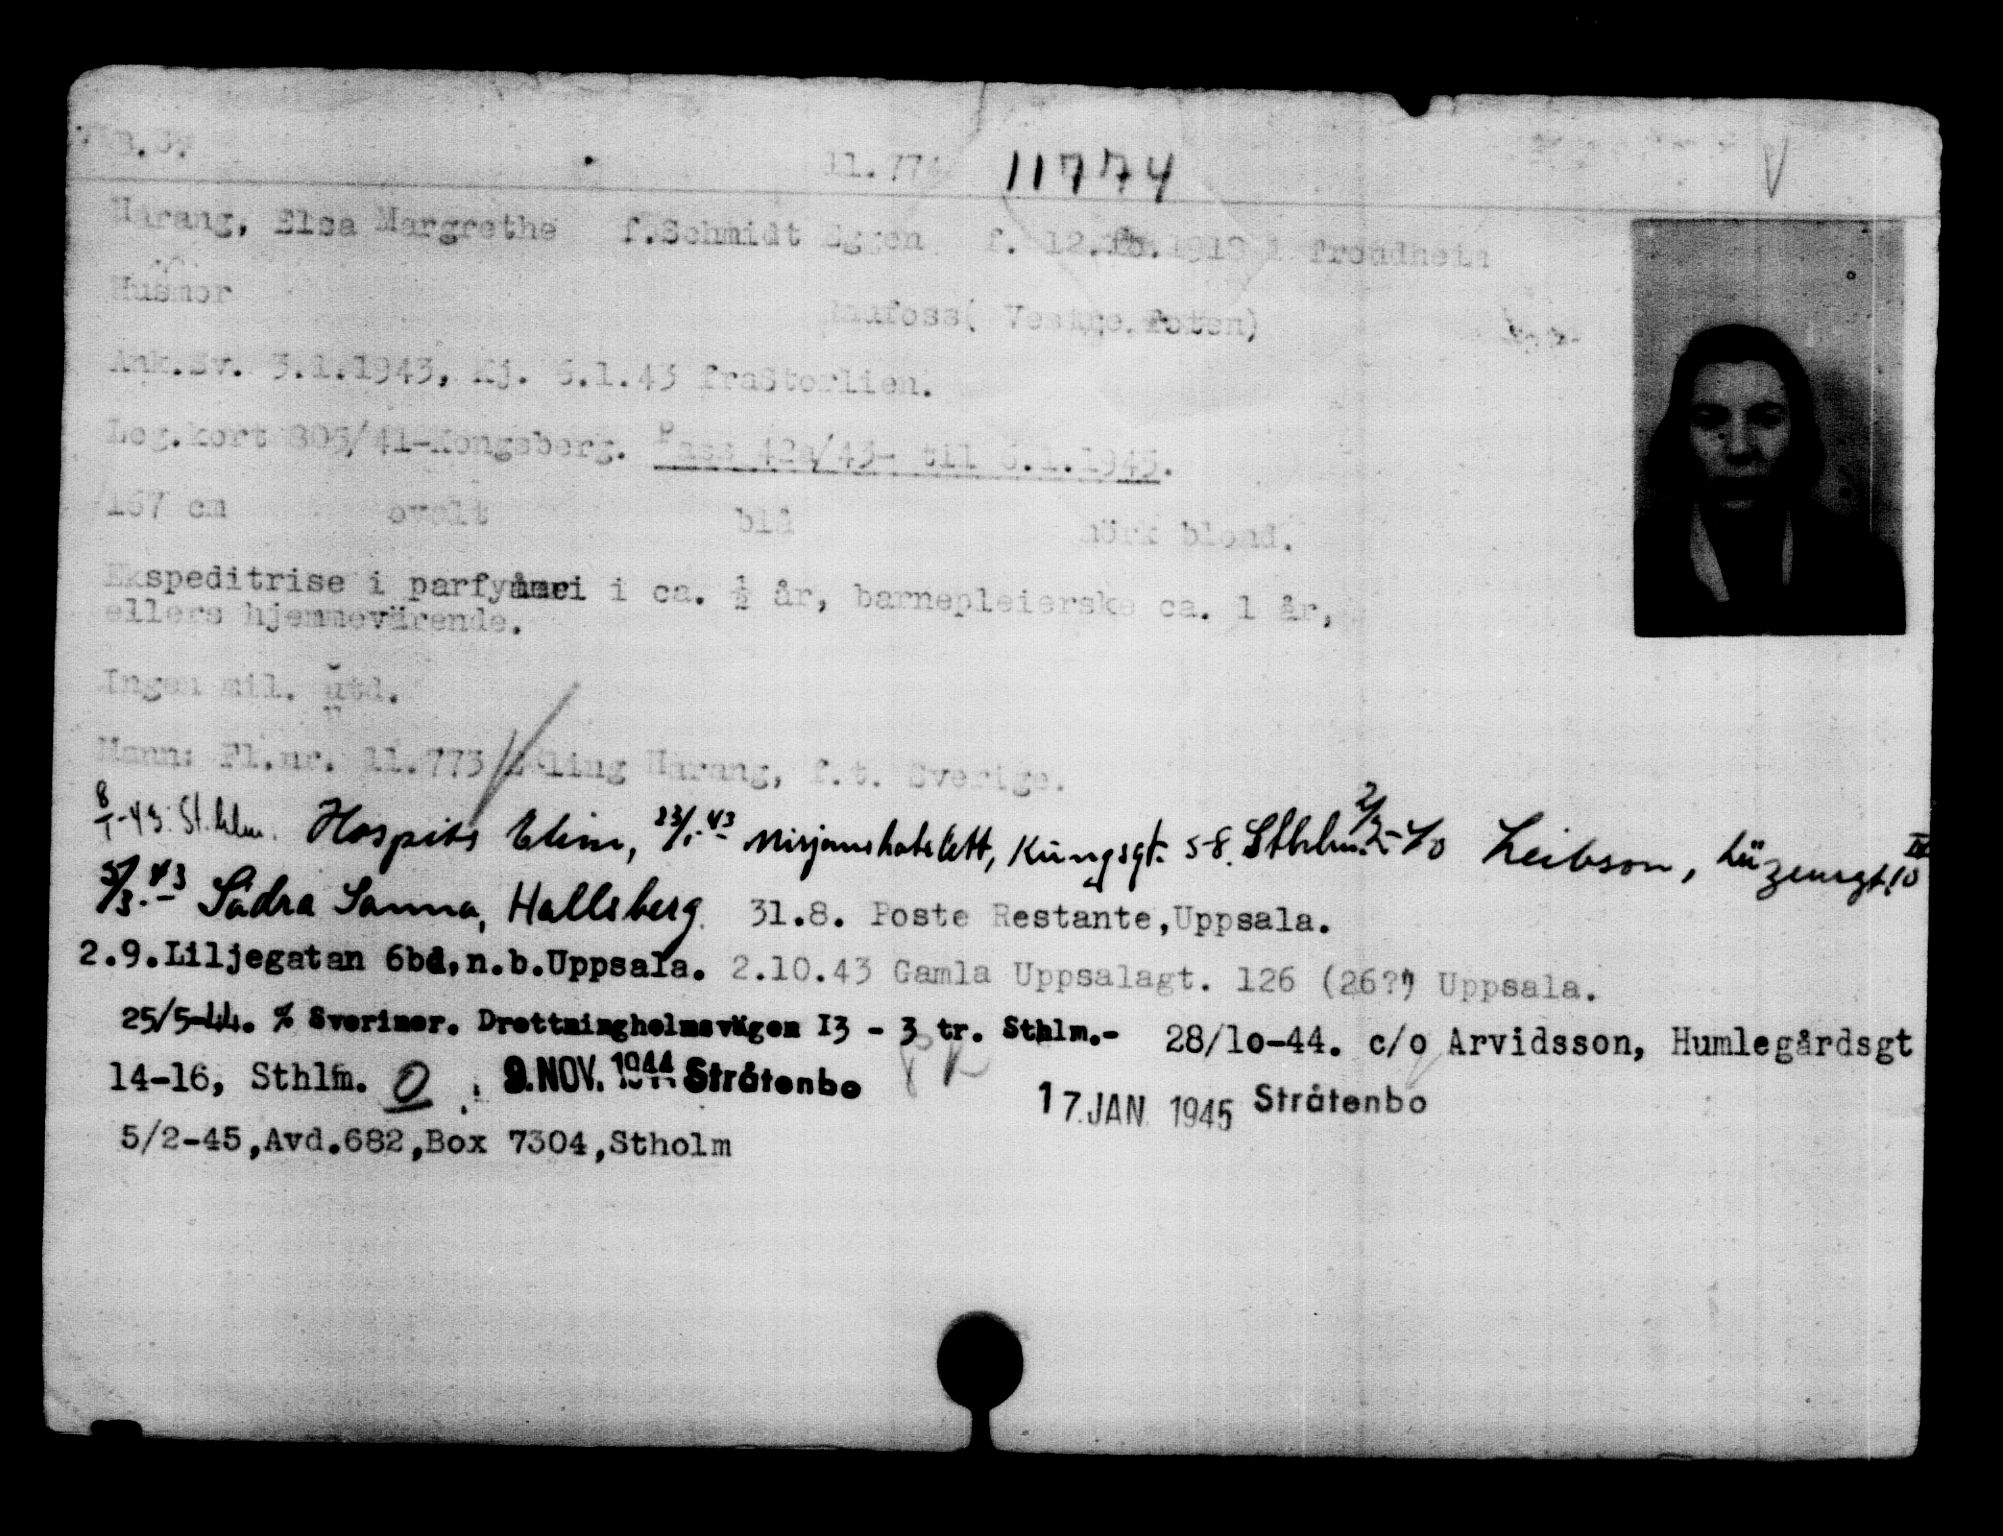 11.774 11774 V
Harang, Elsa Margrethe f.Schmidt Eggen f. 12. .1918 i Trondheim
Husmor Raufoss( Vestre Toten)
Ank.Sv. 3.1.1943, Kj. 6.1.43 fraStorlien.
Leg.kort 805/41-Kongsberg. Pass 42a/43- til 6.1.1945.
167 cm ovalt blå mörk blond.
Ekspeditrise i parfymeri i ca. ½ år, barnepleierske ca. 1 år,
ellers hjemmevärende.
Ingen mil. utd.
Mann: Fl.nr. 11.773/Erling Harang, f.t. Sverige.
8/1-43. St.hlm. Hospits Elim, 23/1-43 Misjonshotellett, Kungsgt. 58. Sthlm. 2/2- c/o Leibson, Lützengt. 10 IV
5/3.-43 Södra Sanna, Hallsberg. 31.8. Poste Restante,Uppsala.
2.9.Liljegatan 6bd,n.b.Uppsala. 2.10.43 Gamla Uppsalagt. 126 (26?) Uppsala.
25/5-44. % Sverimer. Drottningholmsvägen 13 - 3 tr. Sthlm.- 28/1o-44. c/o Arvidsson, Humlegårdsgt
14-16, Sthlm. O 9.NOV. 1944 Stråtenbo 17.JAN 1945 Stråtenbo
5/2-45,Avd.682,Box 7304,Stholm